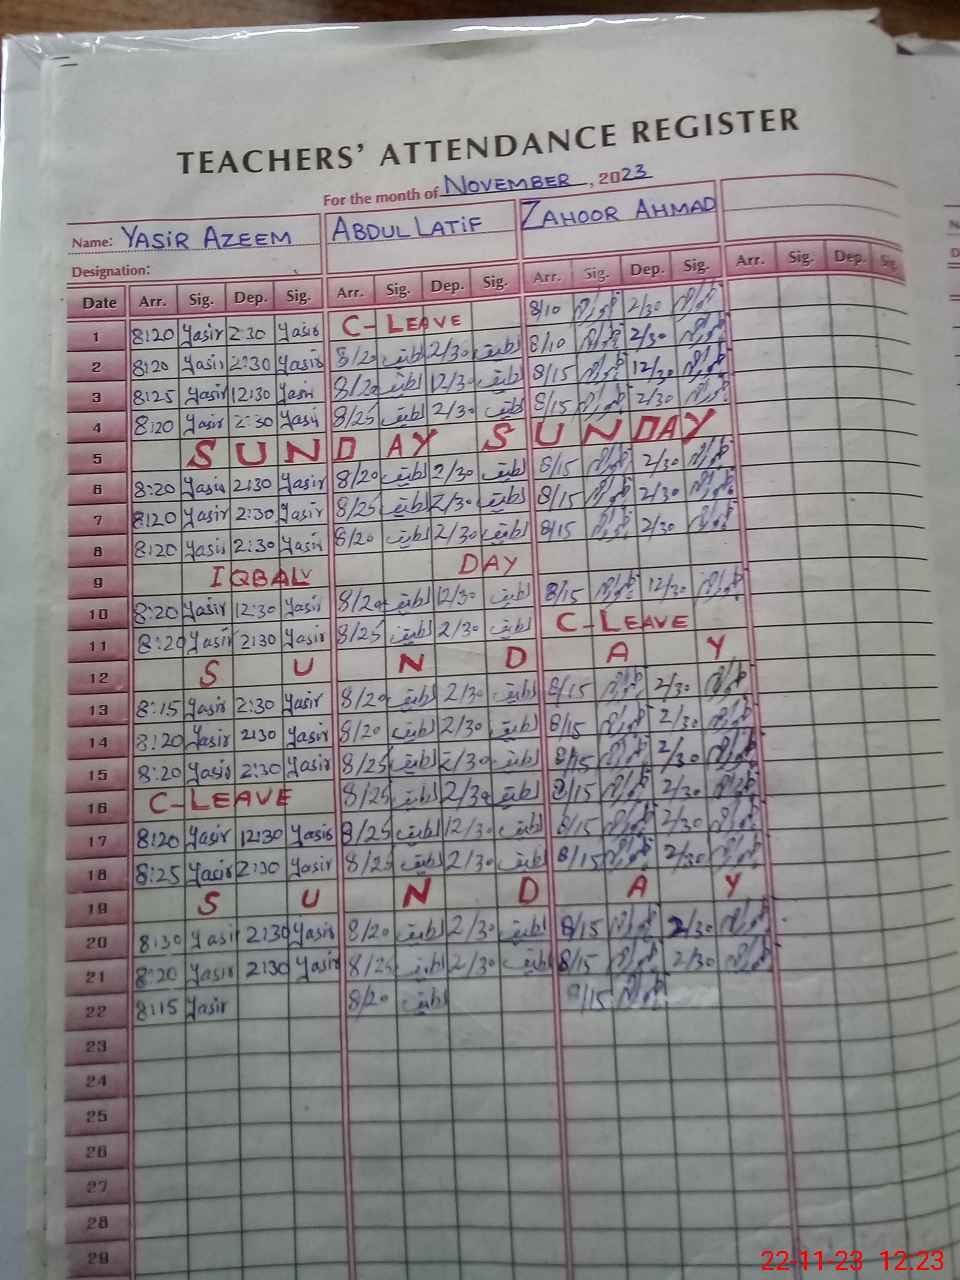 TEACHERS' ATTENDANCE REGISTER
For the month of NOVEMBER, 2023
Name: YASIR AZEEM ABDUL LATIF ZAHOOR AHMAD
Designation:
Date Arr. Sig. Dep. Sig. Arr. Sig. Dep. Sig. Arr. Sig. Dep. Sig. Arr. Sig. Dep. Sig.
1 8:20 Yasir 2:30 Yasir C-LEAVE 8/10 2/30
2 8:20 Yasir 2:30 Yasir 8/20 لطیف 2/30 لطیف 8/10 2/30
3 8:25 Yasir 12:30 Yasir 8/20 لطیف 12/30 لطیف 8/15 12/30
4 8:20 Yasir 2:30 Yasir 8/25 لطیف 2/30 لطیف 8/15 2/30
5 SUNDAY SUNDAY
6 8:20 Yasir 2:30 Yasir 8/20 لطیف 2/30 لطیف 8/15 2/30
7 8:20 Yasir 2:30 Yasir 8/25 لطیف 2/30 لطیف 8/15 2/30
8 8:20 Yasir 2:30 Yasir 8/20 لطیف 2/30 لطیف 8/15 2/30
9 IQBAL DAY
10 8:20 Yasir 12:30 Yasir 8/20 لطیف 12/30 لطیف 8/15 12/30
11 8:20 Yasir 2:30 Yasir 8/25 لطیف 2/30 لطیف C-LEAVE
12 S U N D A Y
13 8:15 Yasir 2:30 Yasir 8/20 لطیف 2/30 لطیف 8/15 2/30
14 8:20 Yasir 2:30 Yasir 8/20 لطیف 2/30 لطیف 8/15 2/30
15 8:20 Yasir 2:30 Yasir 8/25 لطیف 2/30 لطیف 8/15 2/30
16 C-LEAVE 8/25 لطیف 2/30 لطیف 8/15 2/30
17 8:20 Yasir 12:30 Yasir 8/25 لطیف 12/30 لطیف 8/15 2/30
18 8:25 Yasir 2:30 Yasir 8/25 لطیف 2/30 لطیف 8/15 2/30
19 S U N D A Y
20 8:30 Yasir 2:30 Yasir 8/20 لطیف 2/30 لطیف 8/15 2/30
21 8:20 Yasir 2:30 Yasir 8/25 لطیف 2/30 لطیف 8/15 2/30
22 8:15 Yasir 8/20 لطیف 8/15
23
24
25
26
27
28
29
22-11-23 12:23